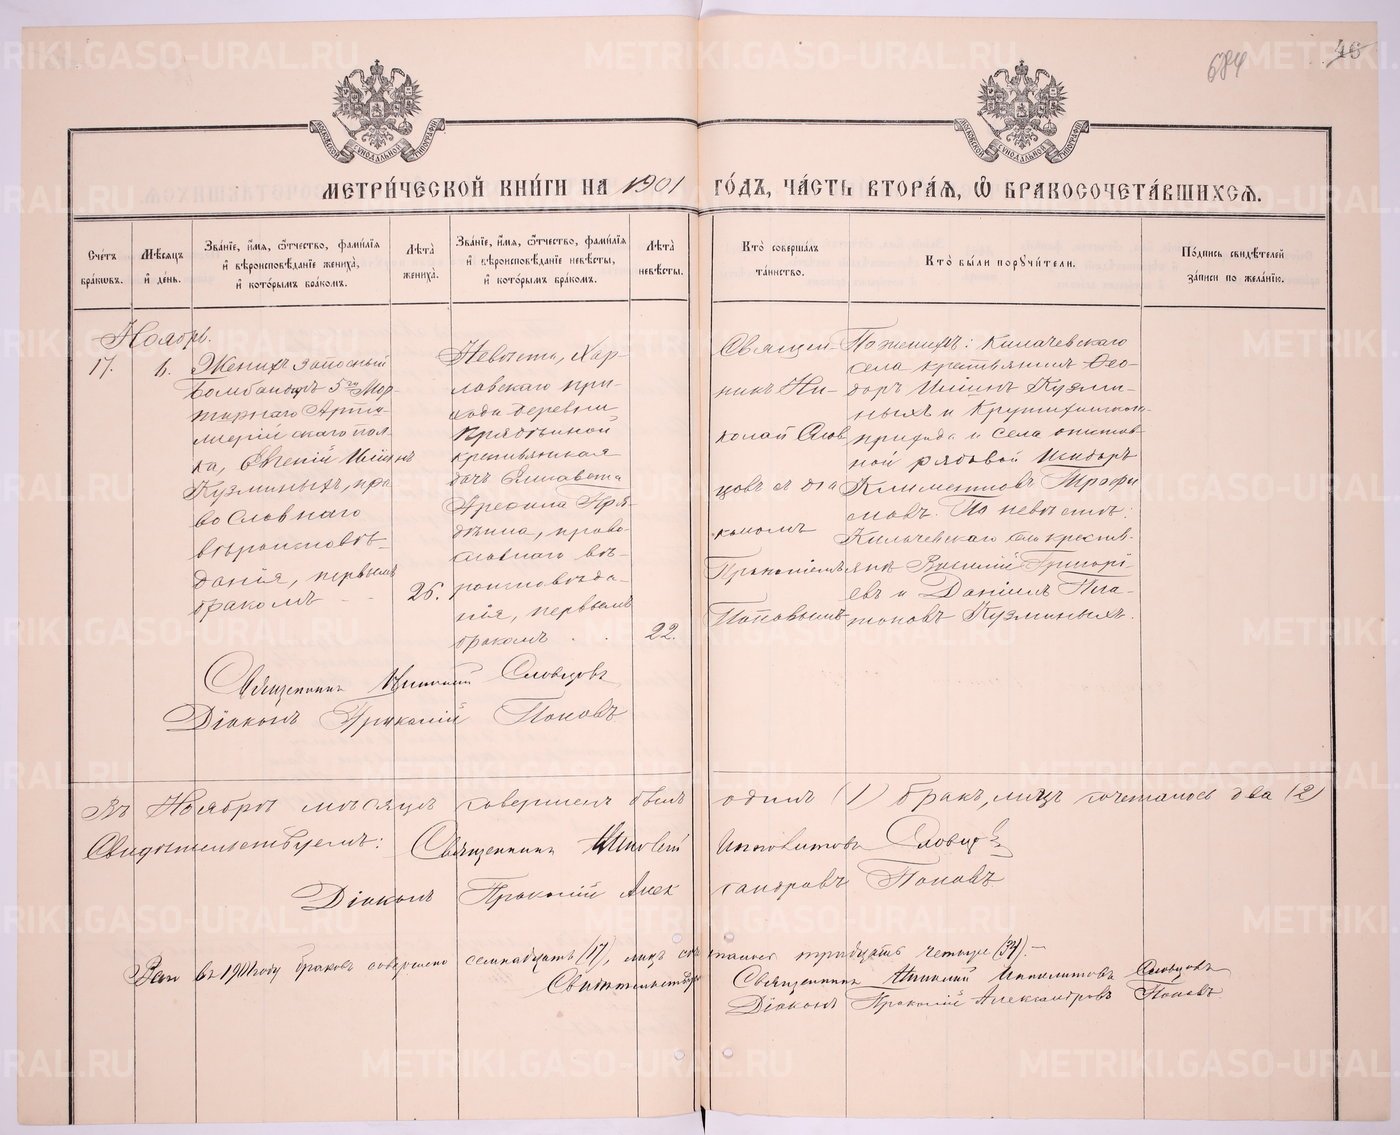 684
46
МЕТРИ́ЧЕСКОЙ КНИ́ГИ НА 1901 ГО́ДЪ, ЧА́СТЬ ВТОРА́Я, Ѡ҆ БРАКОСОЧЕТА́ВШИХСЯ.
Сче́тъ бра́кѡвъ.
Мѣ́сяцъ и҆ де́нь.
Зва́нїе, и҆́мя, ѻ҆́тчество, фами́лїя и҆ вѣроисповѣ́данїе жениха̀, и҆ кото́рымъ бра́комъ.
Лѣ́та жениха̀.
Зва́нїе, и҆́мя, ѻ҆́тчество, фами́лїя и҆ вѣроисповѣ́данїе невѣ́сты, и҆ кото́рымъ бра́комъ.
Лѣ́та невѣ́сты.
Кто̀ соверша́лъ та́инство.
Кто̀ бы́ли порꙋчи́тели.
По́дпись свидѣ́телей за́писи по жела́нїю.
Ноябрь.
17.
6.
Женихъ запасный
Бомбандиръ 5го Мор-
тирнаго Артил-
лерійскаго пол-
ка, Евгеній Ильинъ
Кузминыхъ, пра
вославнаго
вѣроисповѣ-
данія, первымъ
бракомъ
26.
Невѣста, Хар-
ловскаго при-
хода деревни
крестьянская
дочь Елисавета
Прядѣина, право-
славнаго вѣ-
роисповѣда-
нія, первымъ
бракомъ
22.
Священ-
никъ Ни-
колай Слов
цовъ съ діа
кономъ
Прокопіемъ
Поповымъ
По женихѣ: Килачевскаго
села крестьянинъ Ѳео-
доръ Ильинъ Кузми-
ныхъ и
прихода и села отстав-
ной рядовой Исидоръ
Климентовъ Трофи
мовъ. По невѣстѣ:
Килачевскаго села крестья-
яне Василій Григорі
евъ и Даніилъ Пла-
тоновъ Кузминыхъ.
Священникъ Николай Словцовъ
Діаконъ Прокопій Поповъ
Въ Ноябрѣ мѣсяцѣ совершенъ былъ одинъ (1) бракъ, лицъ сочеталось два (2)
Свидѣтельствуемъ: Священникъ Николай Ипполитовъ Словцовъ
Діаконъ Прокопій Александровъ Поповъ
Всего въ 1901 году браковъ совершено семнадцать (17), лицъ сочеталось тридцать четыре (34).
Свидѣтельствуемъ Священникъ Николай Ипполитовъ Словцовъ
Діаконъ Прокопій Александровъ Поповъ
METRIKI.GASO-URAL.RU